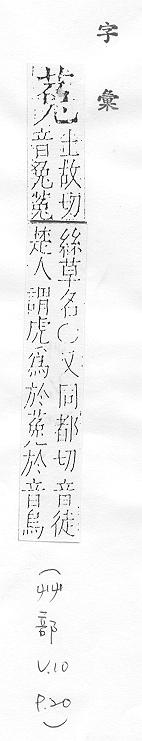 字彙
菟
土故切
音兔菟
絲草名〇又同都切音徒
楚人謂虎爲於菟於音烏
(艸部 V.10 P.20)